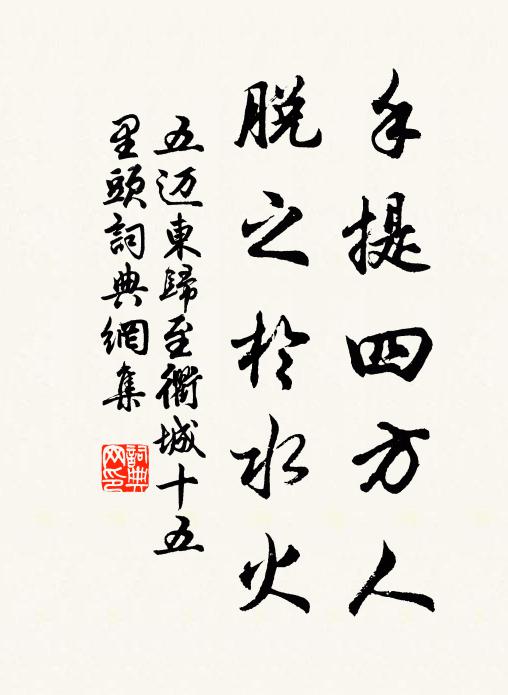 手提四方人
脫之於水火
五迈東歸至衢城十五
里頭詞典網集
詞典
网印